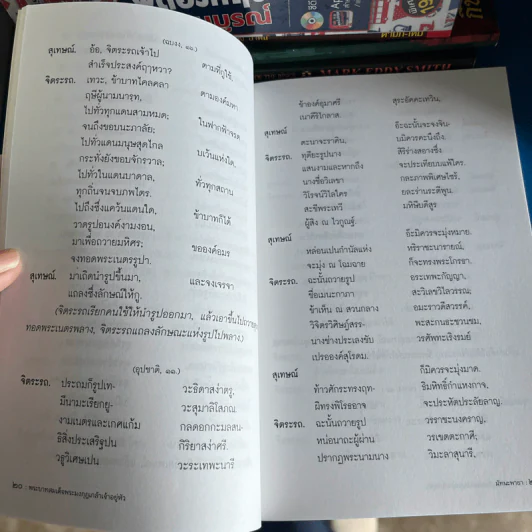 มนุษย์
MARK EDDY SMITH
(ฉบงง, ๑๑.)
สุเทษณ์. อ้อ, จิตระรถเจ้าไป ตามที่กูใช้,
สำเร็จประสงค์ฤๅหวา?
จิตระรถ. เทวะ, ข้าบาทไคลคลา ตามองค์มหา
ฤษีผู้นามนารุท,
ไปทั่วทุกแดนสามหมด; ในฟากฟ้าจรด
จนถึงขอบนะภาลัย;
ไปทั่วแดนมนุษสุดไกล บเว้นแห่งใด,
กระทั่งยังขอบจักรวาล;
ไปทั่วในแดนบาดาล, ทั่วทุกสถาน
ทุกถิ่นจนจบภพไตร.
ไปถึงซึ่งแคว้นแดนใด, ข้าบาทก็ได้
วาดรูปอนงค์งามงอน,
มาเพื่อถวายมหิศร; ขอองค์อมร
จงทอดพระเนตรรูปา.
สุเทษณ์. มาเถิดนำรูปขึ้นมา, และจงเจรจา
แถลงซึ่งลักษณ์ให้กู.
(จิตระรถเรียกคนใช้ให้นำรูปออกมา, แล้วเอาขึ้นไปถวาย
ทอดพระเนตรพลาง, จิตระรถแถลงลักษณะแห่งรูปไปพลาง.)
(อุปชาติ, ๑๑.)
จิตระรถ. ประถมก็รูปเท- วะธิดาสง่าตรู,
มีนามะเรียกยู- วะสุมาลิโสภณ
งามเนตรและเกศแก้ม กลดอกกะมลสน-
ธิสิ่งประเสริฐปน กิริยาสง่าศรี.
วธูวิเศษเปน วะระเทพะนารี
๒๐ : พระบาทสมเด็จพระมงกุฎเกล้าเจ้าอยู่หัว
ข้าองค์อุมาศรี สุระอัคคะเทวิน,
เนาศิริไกลาส.
สุเทษณ์ อ๊ะฉะนั้นจะจงจิน-
ตะนาจะราคิน, บมิควรคะนึงถึง.
จิตระรถ. ทุติยะรูปนาง สิริร่างสอางซึ่ง.
แสนงามและหากถึง จะประเทียบบแพ้ใคร.
นางชื่อวิเลขา กละภาพพิเศษไซร้,
วิโรจน์วิไลใคร ยละร่านระตีพูน.
สะขีพระเทวี มหิษีบดีสูร
ผู้สิง ณ ไวกูณฐ์.
สุเทษณ์ อ๊ะมิควรจะมุ่งหมาย.
หล่อนเปนกำนัลแห่ง หริราชะนารายณ์,
จะมุ่ง ณ โฉมฉาย ก็จะทรงพระโกรธา.
จิตระรถ. ฉะนั้นถวายรูป อระเทพะกัญญา,
ชื่อเมนะกาภา สะวิเลขวิไลวรรณ;
ข้าเห็น ณ สวนกลาง อมะราวดีสวรรค์,
วิจิตรวิศิษฎ์สรร- พะสกนธะชวนชม,
นางช่างประเลงขับ วรศัพทะเริงรมย์
เปรอองค์สุโรดม.
สุเทษณ์ ก็มิควรจะมุ่งมาด.
ท้าวศักระทรงฤท- ธิมหิทธิ์กำแหงกาจ,
ผิทรงพิโรธอาจ จะประหัตประลัยลาญ.
จิตระรถ. ฉะนั้นถวายรูป วรราชะนงคราญ,
หน่อนาถะผู้ผ่าน วรเขตตะกาศี;
ปรากฏพระนามนาง วิมะลาสุนารี,
มัทนะพาธา :